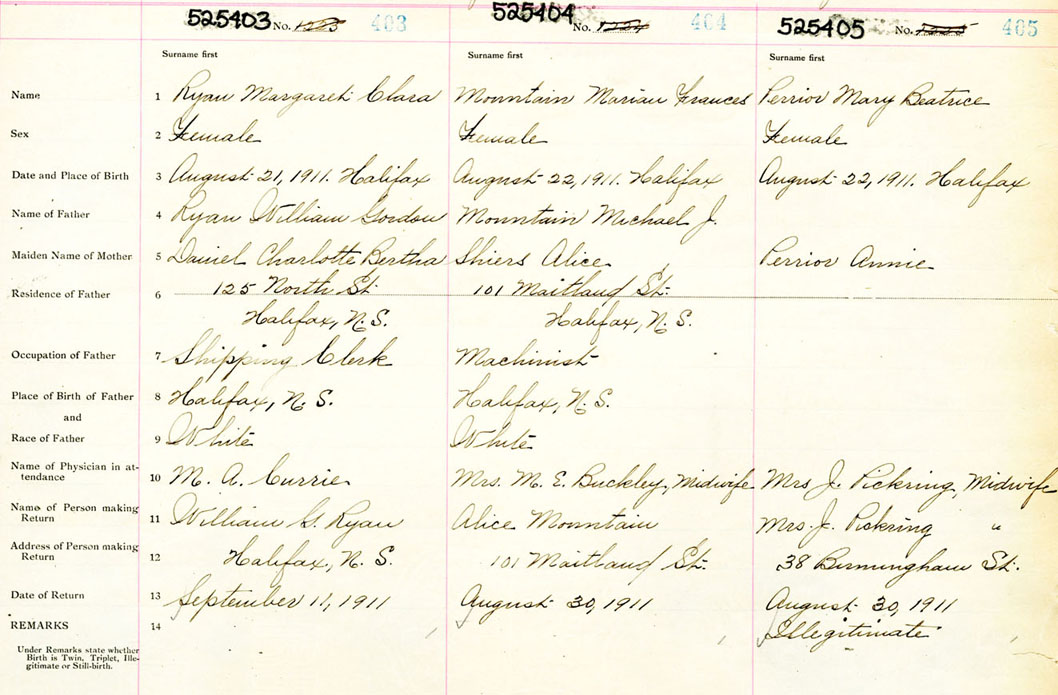 525403 No. 1223 403 525404 No. 1224 404 525405 No. 1225 405
Surname first Surname first Surname first
Name 1 Ryan Margaret Clara Mountain Marian Frances Perrior Mary Beatrice
Sex 2 Female Female Female
Date and Place of Birth 3 August 21, 1911. Halifax August 22, 1911. Halifax August 22, 1911. Halifax
Name of Father 4 Ryan William Gordon Mountain Michael J.
Maiden Name of Mother 5 Daniel Charlotte Bertha Shiers Alice Perrior Annie
Residence of Father 6 125 North St. 101 Maitland St.
Halifax, N.S. Halifax, N.S.
Occupation of Father 7 Shipping Clerk Machinist
Place of Birth of Father 8 Halifax, N.S. Halifax, N.S.
and
Race of Father 9 White White
Name of Physician in at-
tendance 10 M. A. Currie Mrs. M. E. Buckley, Midwife Mrs J. Pickring, Midwife
Name of Person making
Return 11 William G. Ryan Alice Mountain Mrs. J. Pickring "
Address of Person making
Return 12 Halifax, N.S. 101 Maitland St. 38 Birmingham St.
Date of Return 13 September 11, 1911 August 30, 1911 August 30, 1911
REMARKS 14 Illegitimate
Under Remarks state whether
Birth is Twin, Triplet, Ille-
gitimate or Still-birth.